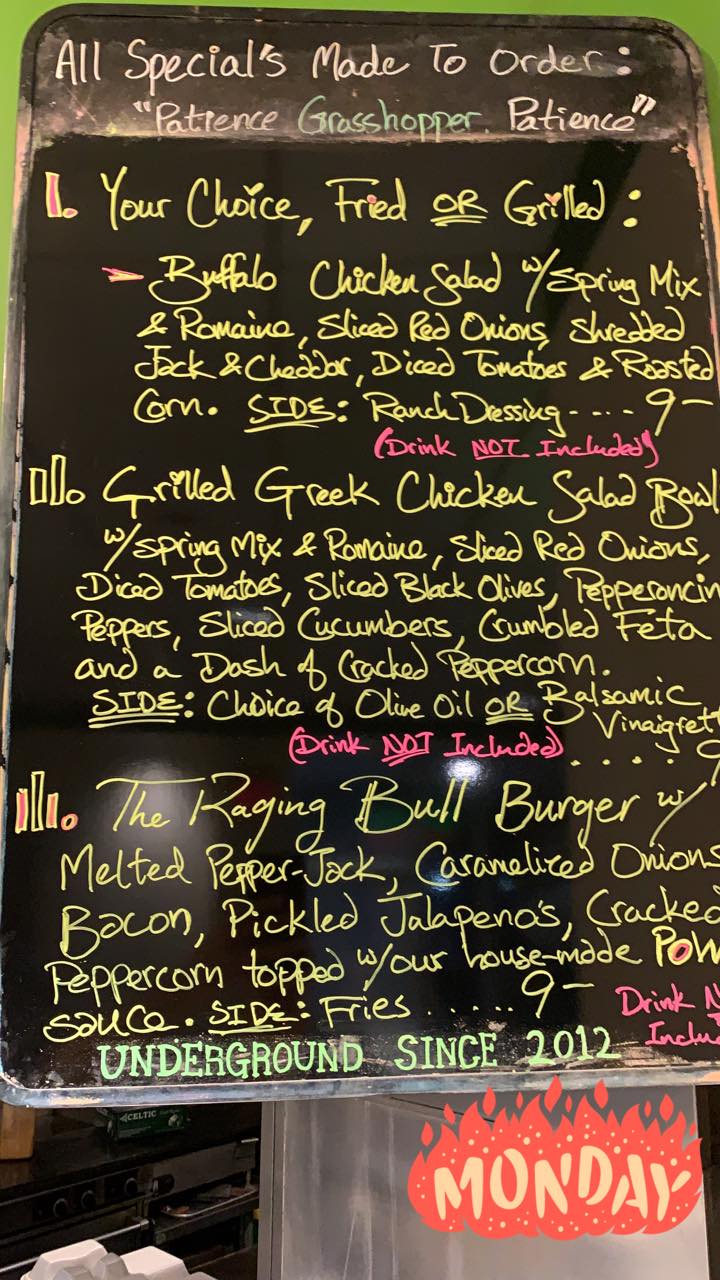 All Special's Made To Order:
"Patience Grasshopper. Patience"
I. Your Choice, Fried OR Grilled:
Buffalo Chicken Salad w/Spring Mix
& Romaine, Sliced Red Onions, Shredded
Jack & Cheddar, Diced Tomatoes & Roasted
Corn. SIDE: Ranch Dressing---- 9-
(Drink NOT Included)
II. Grilled Greek Chicken Salad Bowl
w/Spring Mix & Romaine, Sliced Red Onions,
Diced Tomatoes, Sliced Black Olives, Pepperoncin
Peppers, Sliced Cucumbers, Crumbled Feta
and a Dash of Cracked Peppercorn.
SIDE: Choice of Olive Oil OR Balsamic
Vinaigrett
(Drink NOT Included) . . . . . 9
III. The Raging Bull Burger w/
Melted Pepper-Jack, Caramelized Onions
Bacon, Pickled Jalapeno's, Cracked
Peppercorn topped w/our house-made POW
sauce. SIDE: Fries ...... 9- Drink N
Inclu
UNDERGROUND SINCE 2012
CELTIC
MONDAY